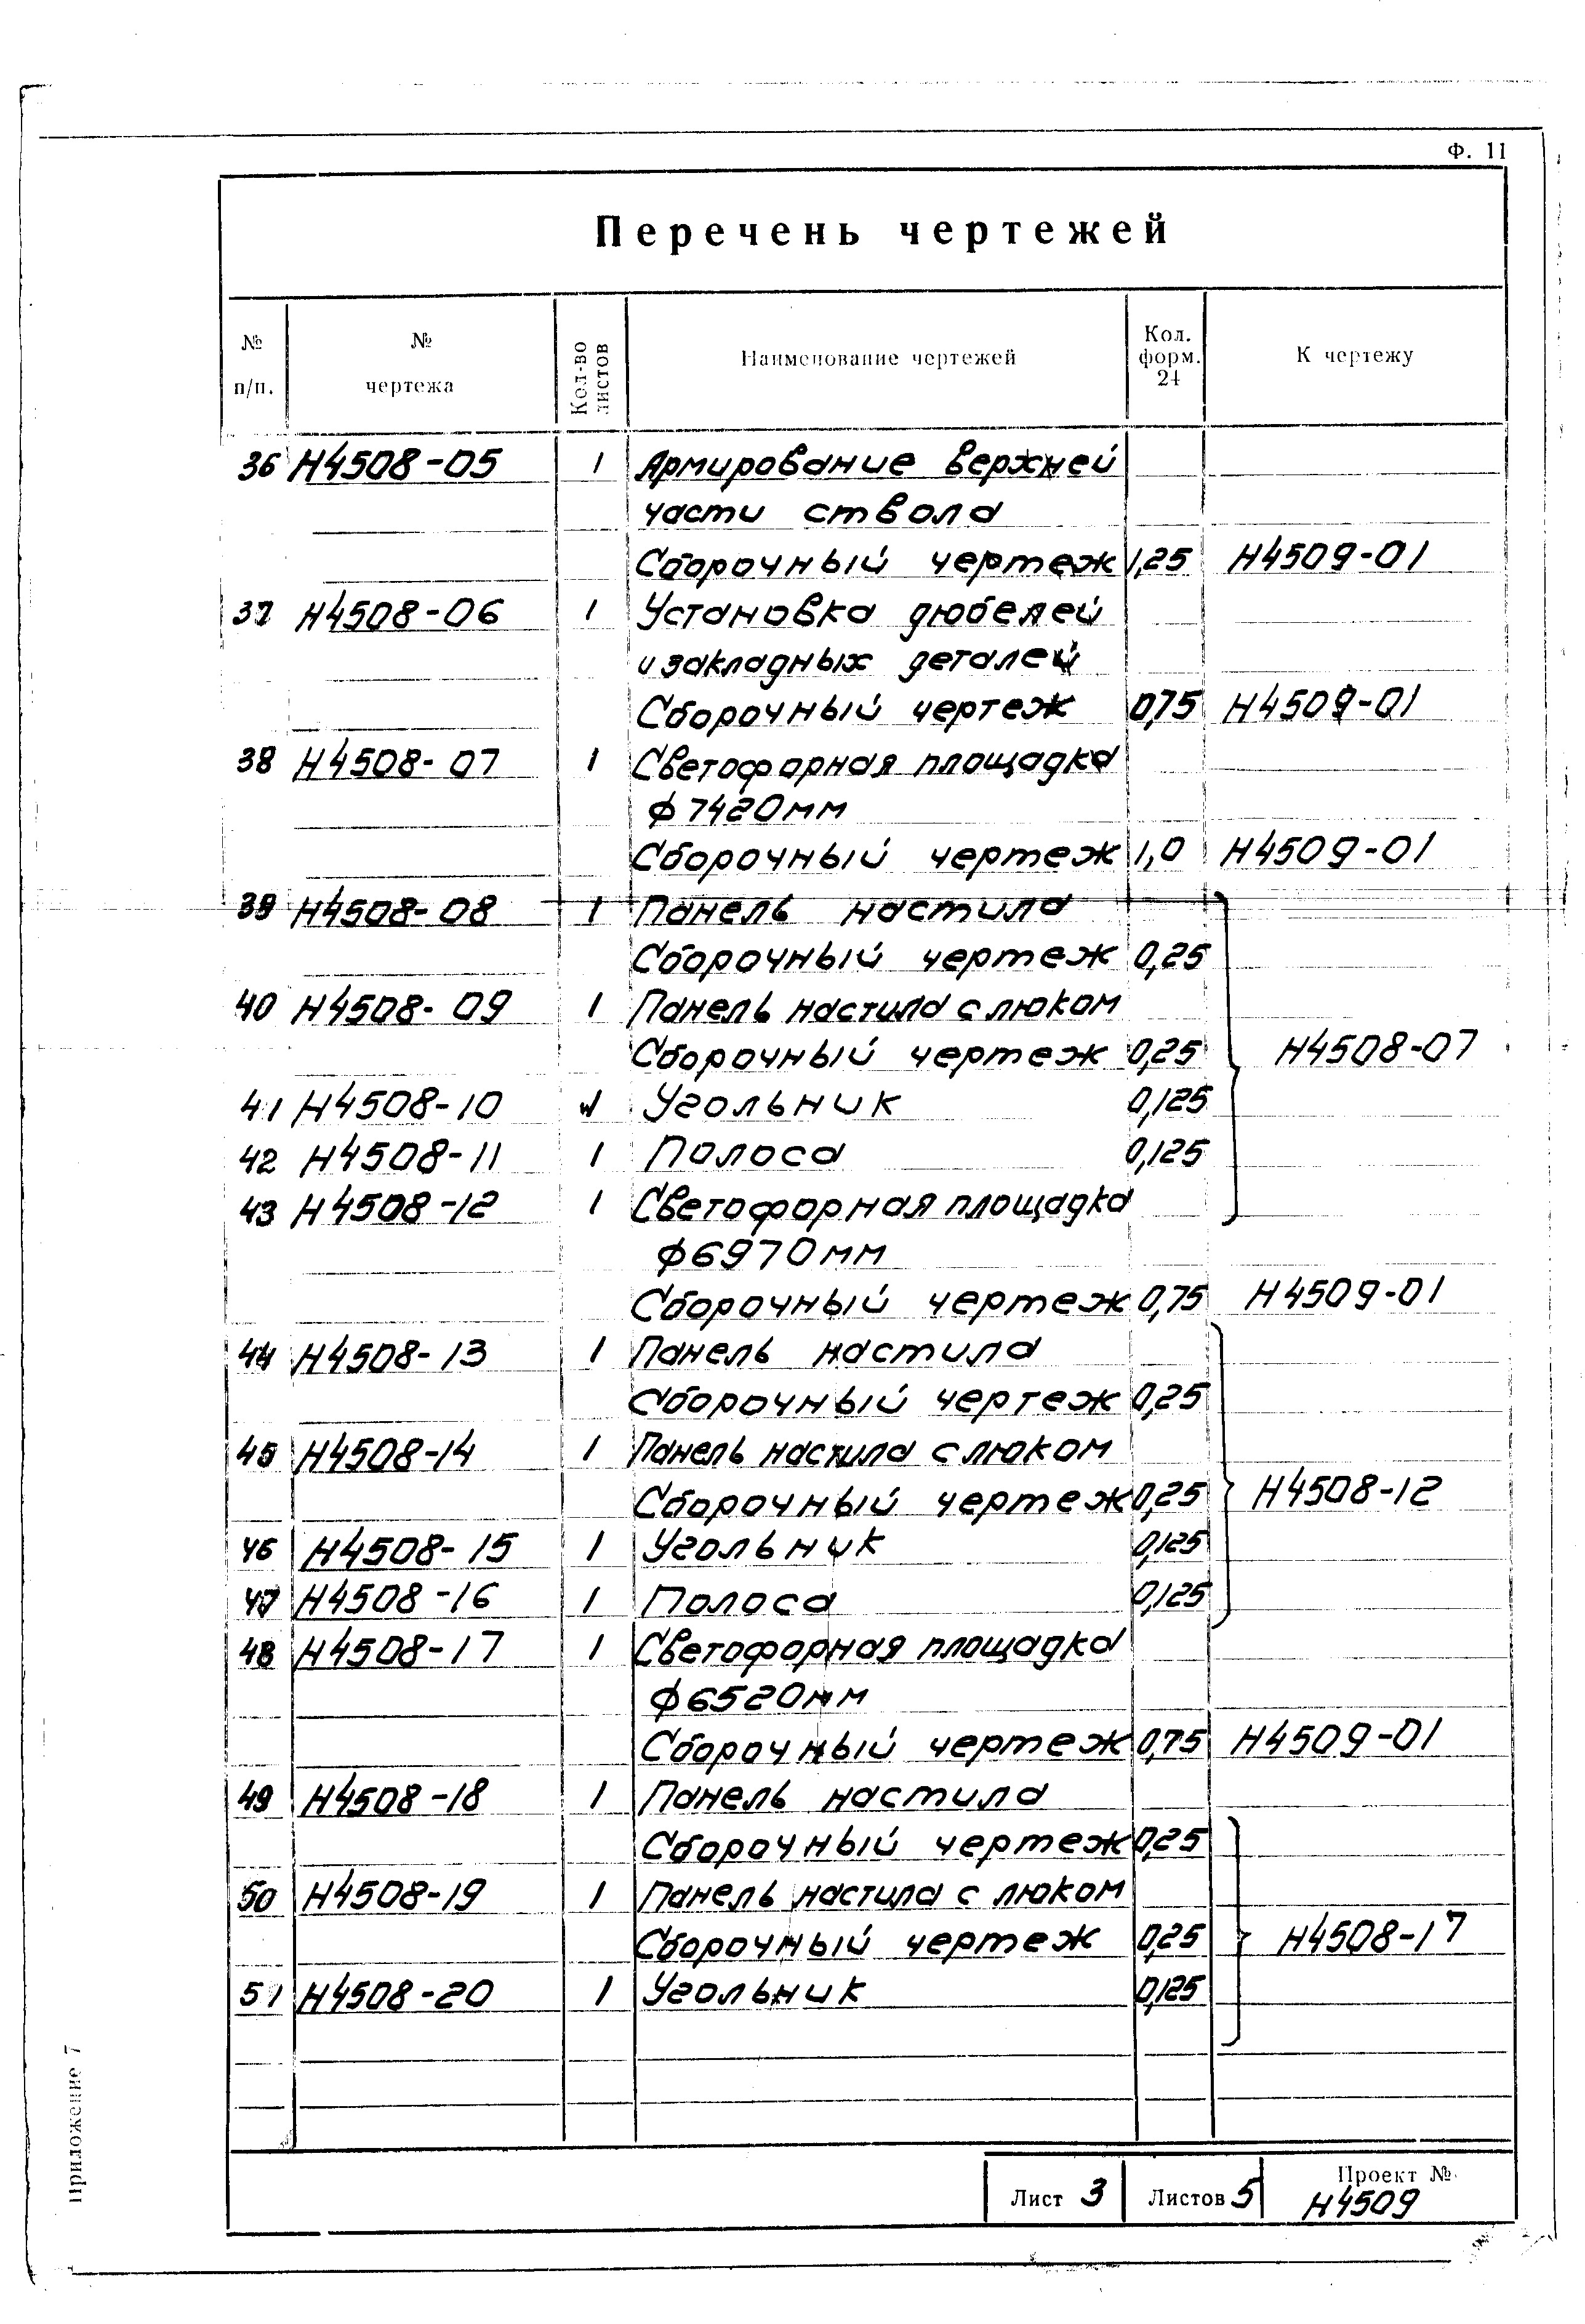 Ф. 11
Перечень чертежей
№ п/п. № чертежа Кол-во листов Наименование чертежей Кол. форм. 24 К чертежу
36 Н4508-05 1 Армирование верхней
части ствола
Сборочный чертеж 1,25 Н4509-01
37 Н4508-06 1 Установка дюбелей
и закладных деталей
Сборочный чертеж 0,75 Н4509-01
38 Н4508-07 1 Светофорная площадка
ф 7420мм
Сборочный чертеж 1,0 Н4509-01
39 Н4508-08 1 Панель настила
Сборочный чертеж 0,25
40 Н4508-09 1 Панель настила с люком
Сборочный чертеж 0,25 Н4508-07
41 Н4508-10 Угольник 0,125
42 Н4508-11 1 Полоса 0,125
43 Н4508-12 1 Светофорная площадка
ф6970мм
Сборочный чертеж 0,75 Н4509-01
44 Н4508-13 1 Панель настила
Сборочный чертеж 0,25
45 Н4508-14 1 Панель настила с люком
Сборочный чертеж 0,25 Н4508-12
46 Н4508-15 1 Угольник 0,125
47 Н4508-16 1 Полоса 0,125
48 Н4508-17 1 Светофорная площадка
ф6520мм
Сборочный чертеж 0,75 Н4509-01
49 Н4508-18 1 Панель настила
Сборочный чертеж 0,25
50 Н4508-19 1 Панель настила с люком
Сборочный чертеж 0,25 Н4508-17
51 Н4508-20 1 Угольник 0,125
Приложение 7
Лист 3 Листов 5 Проект №
Н4509